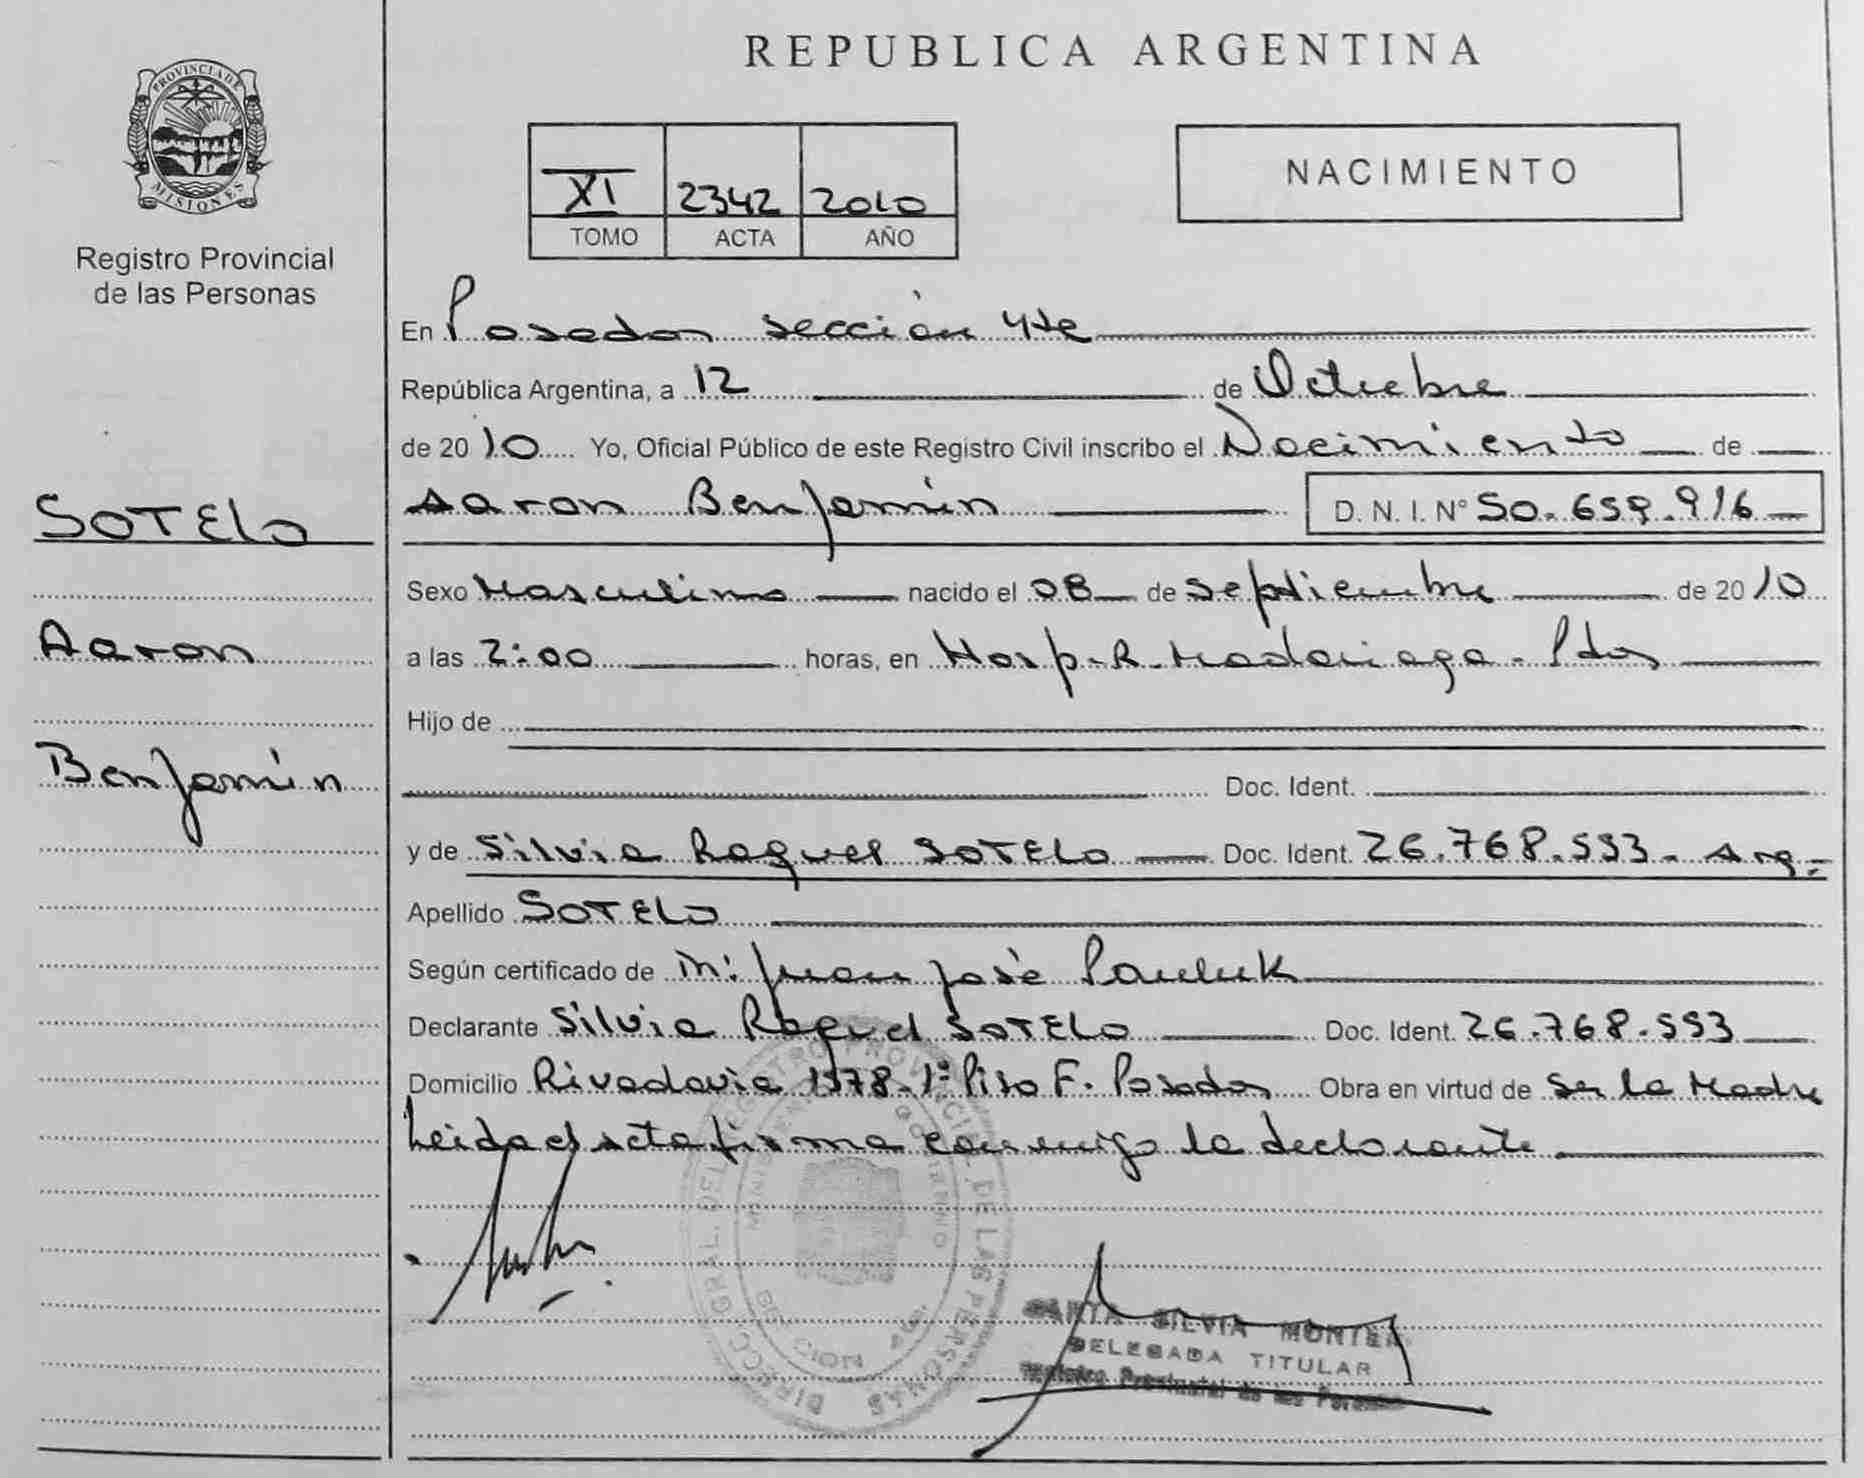 REPUBLICA ARGENTINA
PROVINCIA DE MISIONES
Registro Provincial
de las Personas
XI 2342 2010
TOMO ACTA AÑO
NACIMIENTO
SOTELO
Aaron
Benjamín
En Posadas sección 4te
República Argentina, a 12 de Octubre
de 2010 Yo, Oficial Público de este Registro Civil inscribo el Nacimiento de
Aaron Benjamín D. N. I. N° 50.659.916
Sexo Masculino nacido el 08 de Septiembre de 2010
a las 2:00 horas, en Hosp. R. Madariaga - Pdas
Hijo de
Doc. Ident.
y de Silvia Raquel SOTELO Doc. Ident. 26.768.553 - Arg.-
Apellido SOTELO
Según certificado de Juan José Pauluk
Declarante Silvia Raquel SOTELO Doc. Ident. 26.768.553
Domicilio Rivadavia 1578-1° Piso F. Posadas Obra en virtud de Ser la Madre
Leida el acta firma conmigo la declarante
DIRECC. GRAL. DEL REGISTRO PROVINCIAL DE LAS PERSONAS
SILVIA
DELEGADA TITULAR
Registro Provincial de las Personas